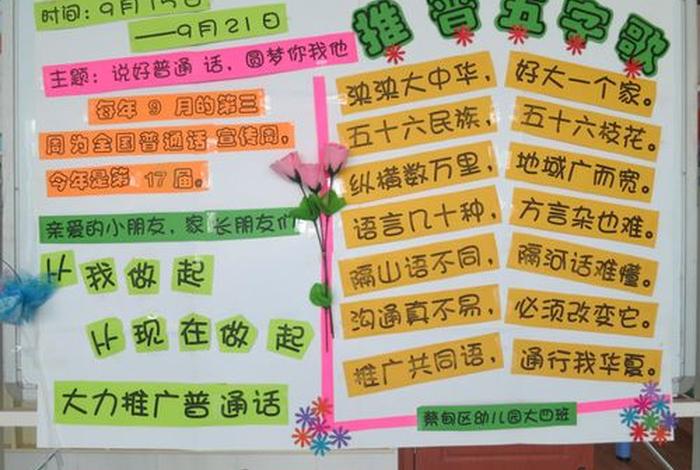 时间：9月15日
——9月21日
主题：说好普通话，圆梦你我他
每年9月的第三
周为全国普通话宣传周，
今年是第17届。
亲爱的小朋友，家长朋友们
从我做起
从现在做起
大力推广普通话
推普五字歌
泱泱大中华，好大一个家。
五十六民族，五十六枝花。
纵横数万里，地域广而宽。
语言几十种，方言杂也难。
隔山语不同，隔河话难懂。
沟通真不易，必须改变它。
推广共同语，通行我华夏。
蔡甸区幼儿园大四班